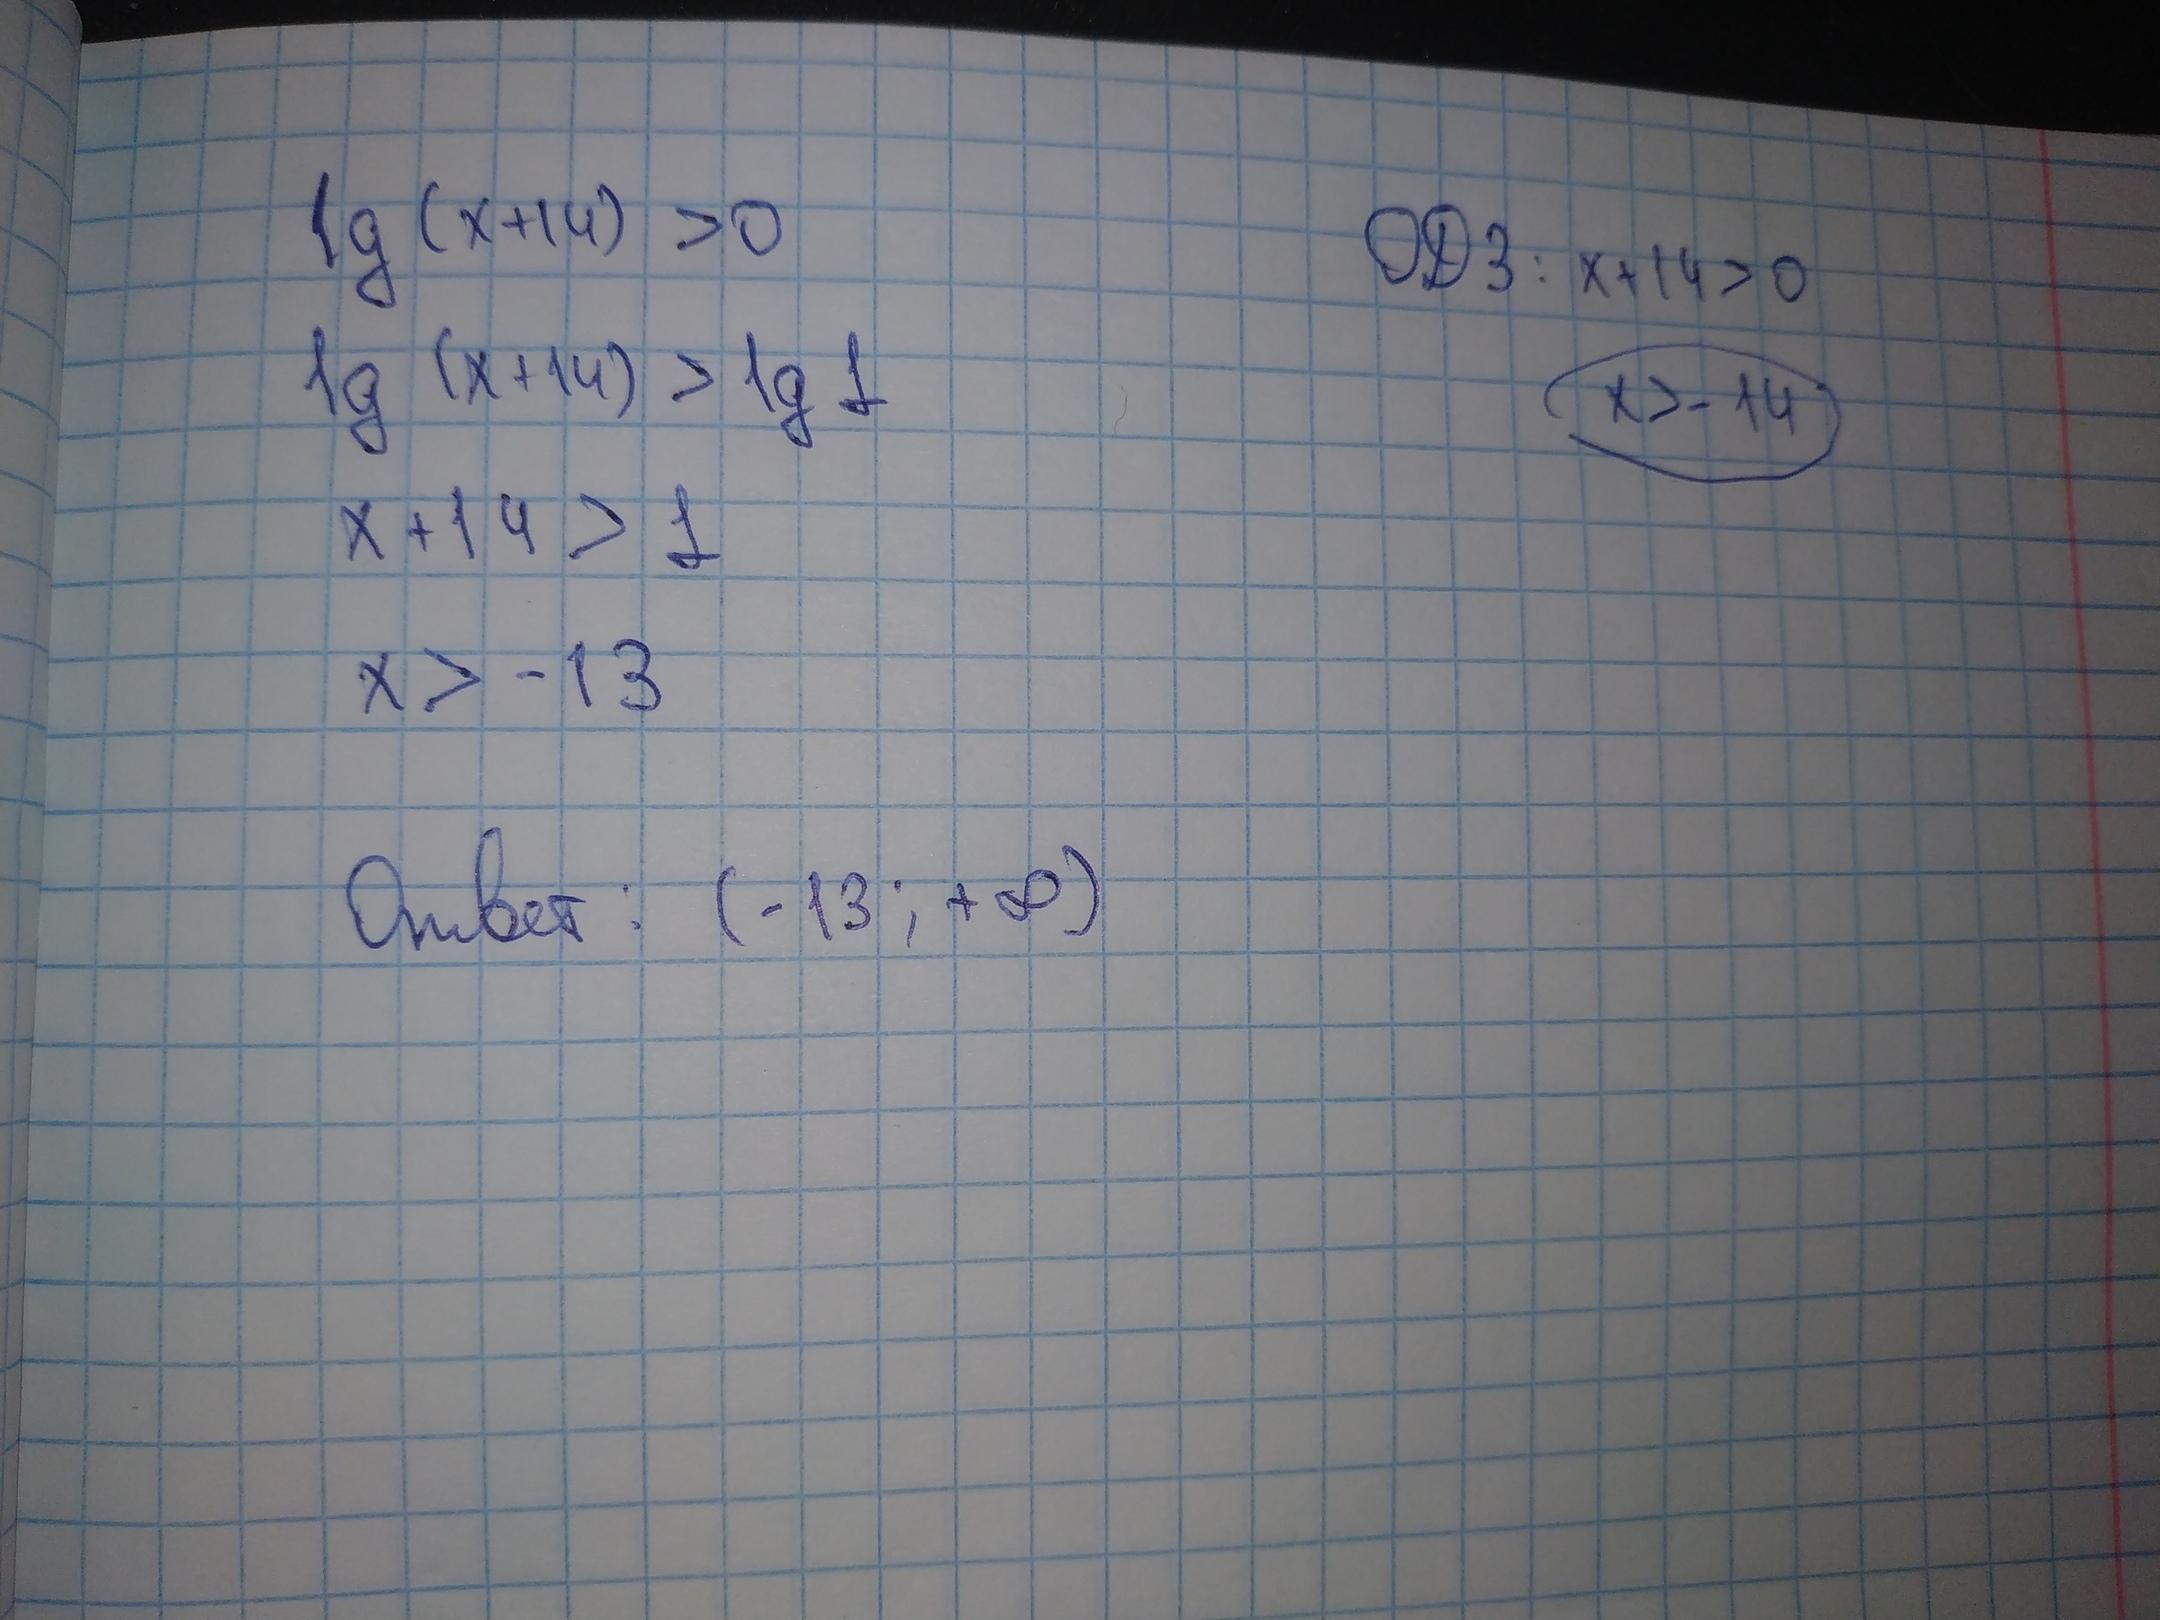 lg (x+14) >0
lg (x+14) > lg 1
x+14 > 1
x > -13
Ответ: (-13; +∞)
ОДЗ: x+14>0
x>-14